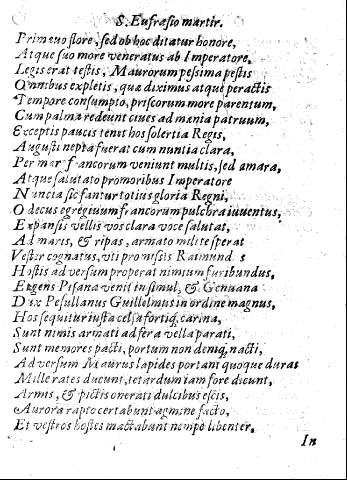 S. Eufrasio martir.
Prim euo flore, sed ob hoc ditatur honore,
Atque suo more veneratus ab Imperatore.
Legis erat testis, Maurorum pesima pestis
Omnibus expletis, quæ diximus atque peractis
Tempore consumpto, priscorum more parentum,
Cum palma redeunt ciues ad mænia patruum,
Exceptis paucis tenet hos solertia Regis,
Augusti nepta fuerat cum nuntia clara,
Per mar francorum veniunt multis, sed amara,
Atque salutato promoribus Imperatore
Nuncia sic fantur totius gloria Regni,
O decus egregiuum francorum pulchra iuuentus,
Expansis vellis vos clara voce salutat,
Ad maris, & ripas, armato milite sperat
Vester cognatus, vti promissis Raimund s
Hostis ad versum properat nimium furibundus,
Eugens Pisana venit insimul, & Genuana
Dux Pesullanus Guillelmus in ordine magnus,
Hos sequitur iuxta celsa fortiq; carina,
Sunt nimis armati ad fera vella parati,
Sunt memores pacti, portum non deniq; nacti,
Ad versum Maurus lapides portant quoque duros
Mille rates ducunt, te tardum iam fore dicunt,
Armis, & pictis onerati dulcibus escis,
Aurora rapto certabunt agmine facto,
Et vestros hostes mactabunt nempe libenter.
In